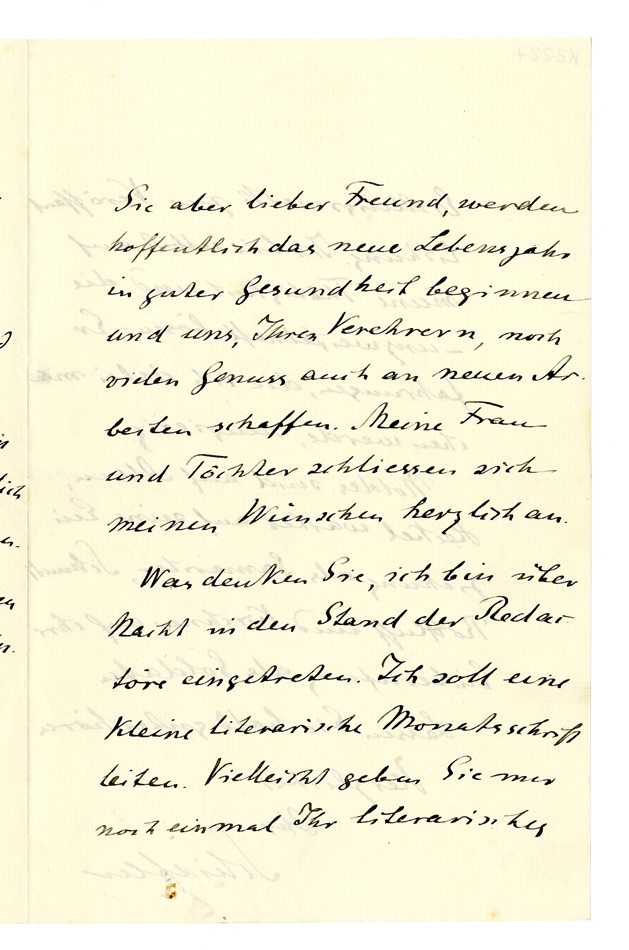 Sie aber lieber Freund, werden
hoffentlich das neue Lebensjahr
in guter Gesundheit beginnen
und uns, Ihren Verehrern, noch
vielen Genuss auch an neuen Ar-
beiten schaffen. Meine Frau
und Töchter schliessen sich
meinen Wünschen herzlich an.
Was denken Sie, ich bin über
Nacht in den Stand der Redac-
töre eingetreten. Ich soll eine
kleine literarische Monatsschrift
leiten. Vielleicht geben Sie mir
noch einmal Ihr literarisches